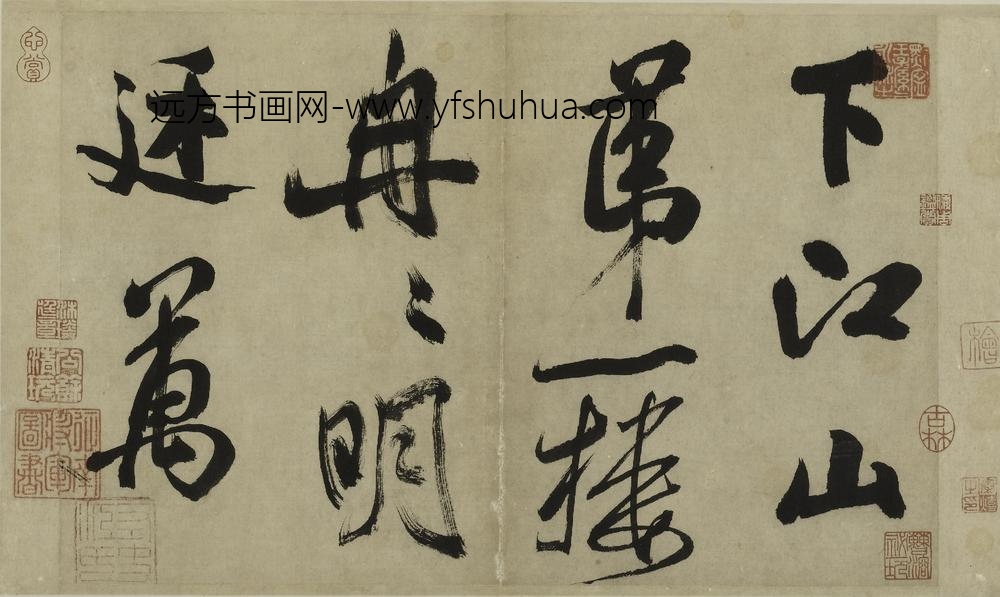 下江山
第一樓
冉〻明
廷萬
远方书画网-www.yfshuhua.com